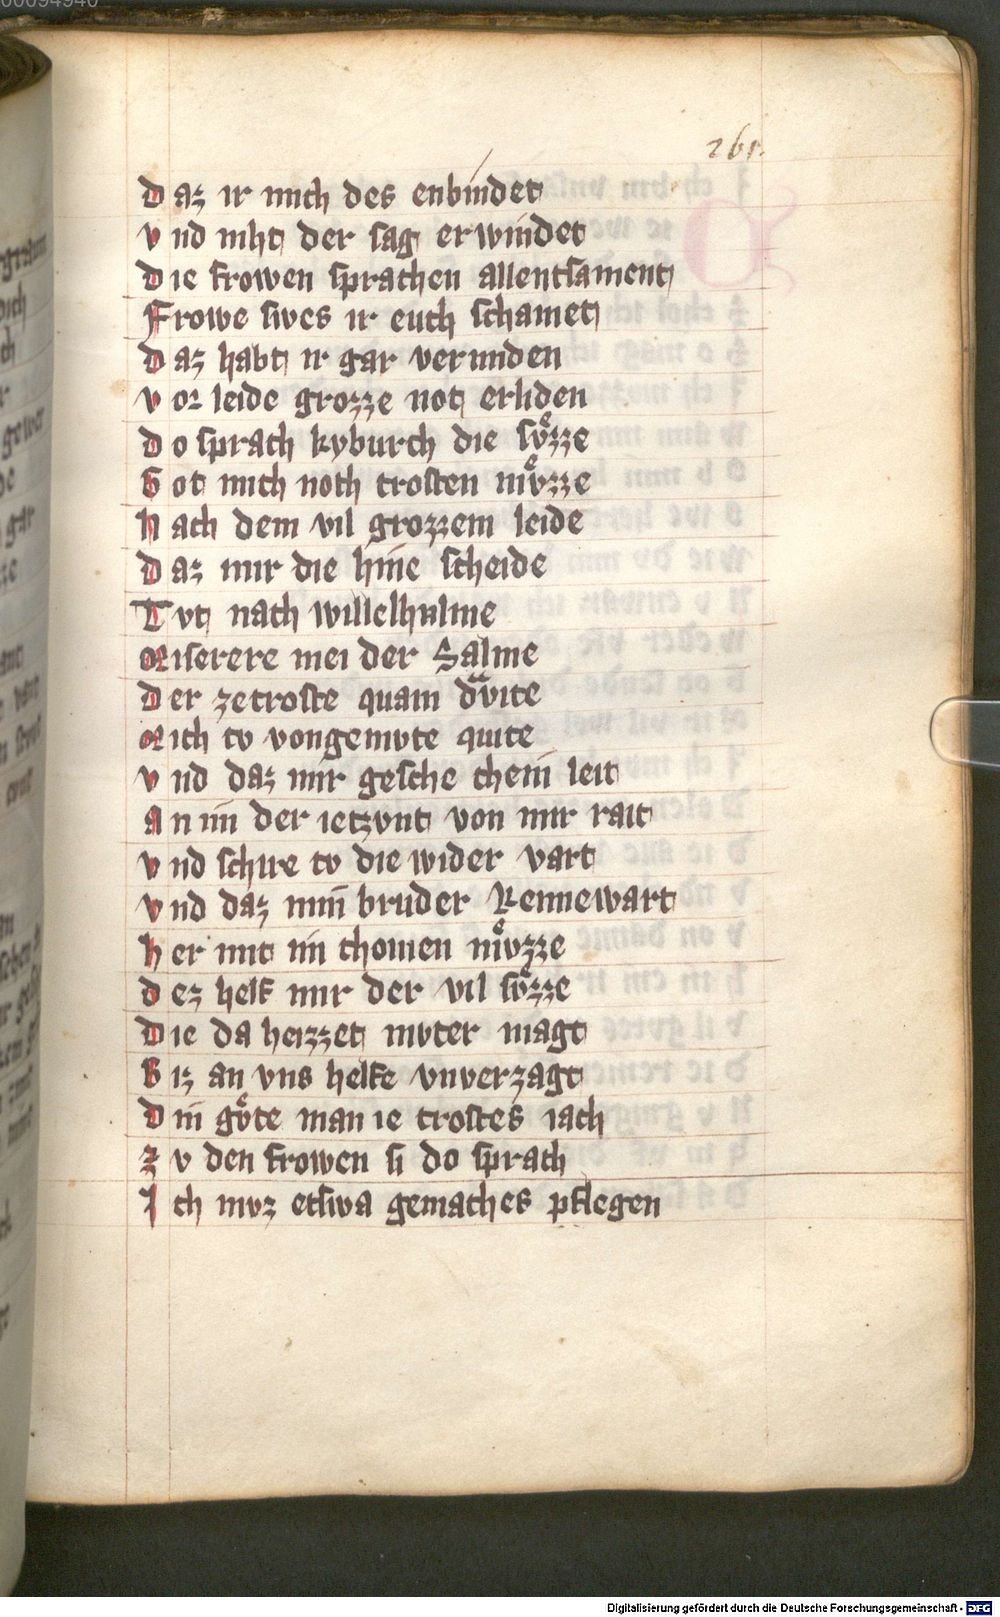 261.
D az ir mich des enbindet
v nd niht der sag erwindet
D ie frowen sprachen allentsament
Frowe swes ir euch schamet
D az habt ir gar verunden
v or leide grozze not erliden
D o sprach kyburch die sv̊zze
G ot mich noch trosten mv̊zze
N ach dem vil grozzem leide
D az mir die hine scheide
T vt nach willelhalme
M iserere mei der Salme
D er zetroste quam dauite
M ich tv vongemvte quite
v nd daz mir gesche chein leit
A n im der ietzvnt von mir rait
v nd schire tv die wider vart
v nd daz min bruder Rennewart
h er mit im chomen mv̊zze
d ez helf mir der vil sv̊zze
D ie da heizzet mvter magt
B iz an vns helfe vnverzagt
D in gv̊te man ie trostes iach
Z v den frowen si do sprach
I ch mvz etswa gemaches pflegen
Digitalisierung gefördert durch die Deutsche Forschungsgemeinschaft - DFG